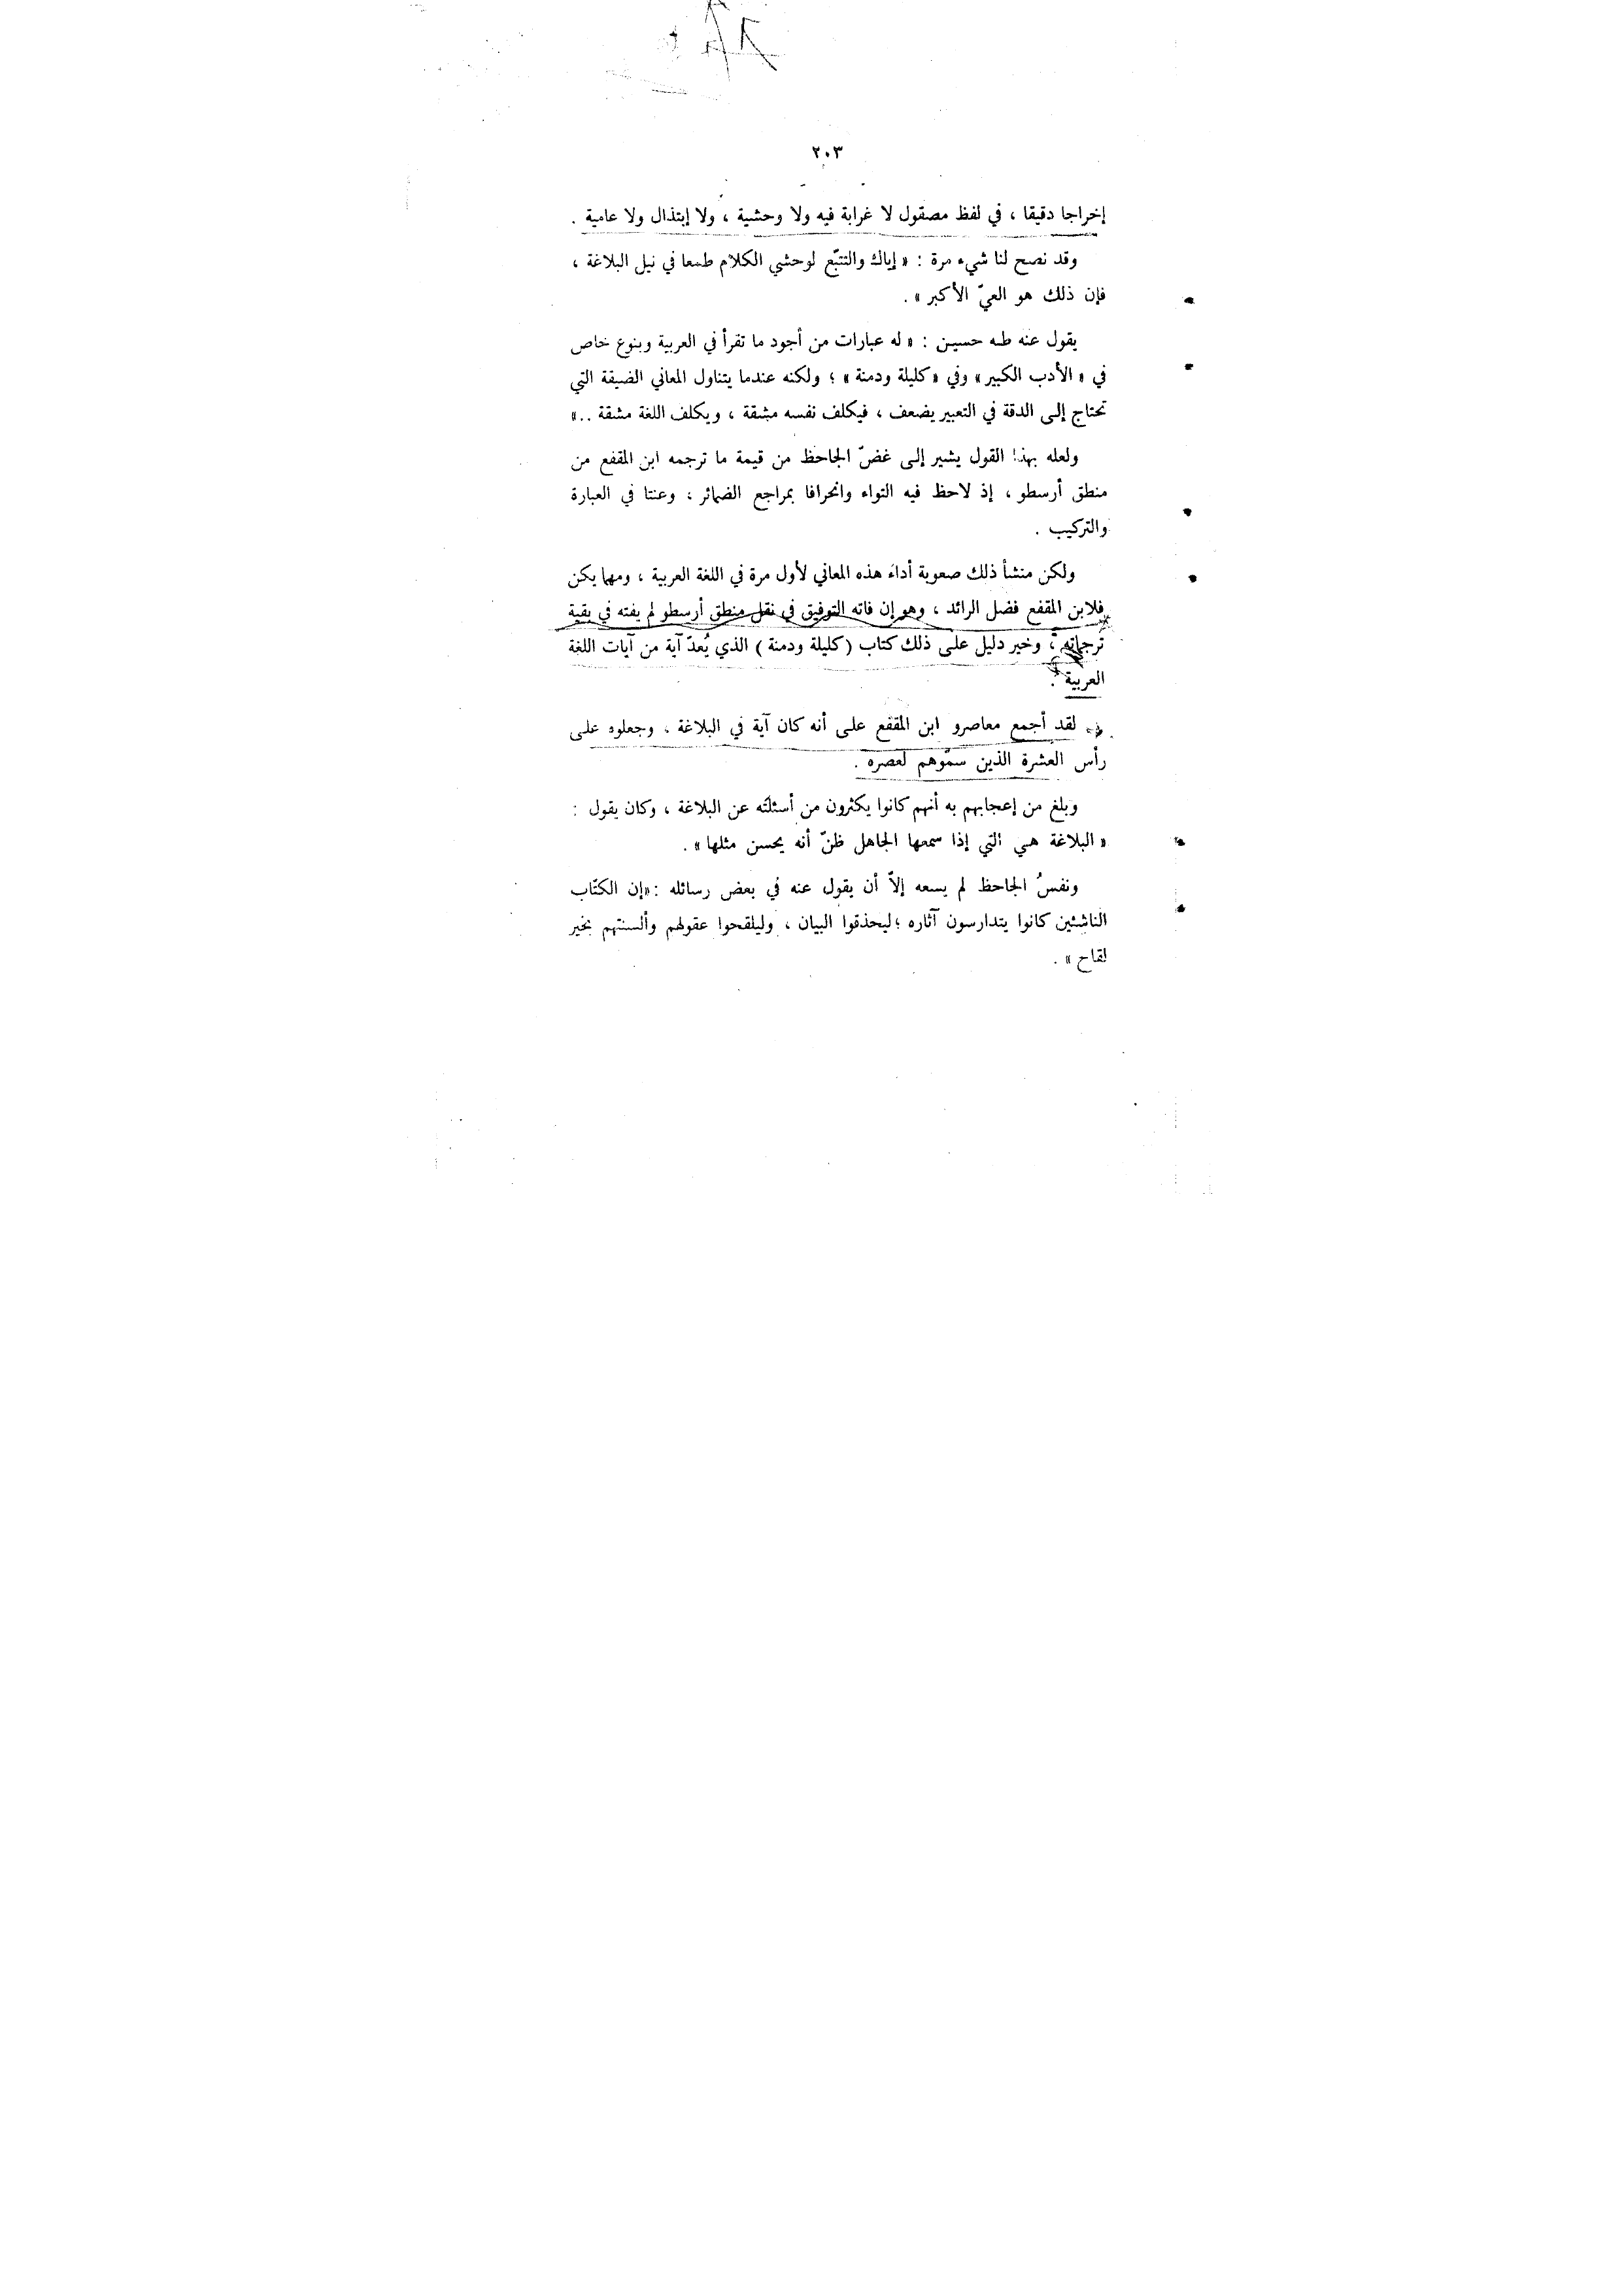 ٢٠٣
إخراجا دقيقا ، في لفظ مصقول لا غرابة فيه ولا وحشية ، ولا إبتذال ولا عامية .
وقد نصح لنا شيء مرة : « إياك والتتبّع لوحشي الكلام طمعا في نيل البلاغة ،
فإن ذلك هو العيّ الأكبر » .
يقول عنه طه حسين : « له عبارات من أجود ما تقرأ في العربية وبنوع خاص
في « الأدب الكبير » وفي « كليلة ودمنة » ؛ ولكنه عندما يتناول المعاني الضيقة التي
تحتاج إلى الدقة في التعبير يضعف ، فيكلف نفسه مشقة ، ويكلف اللغة مشقة .. »
ولعله بهذا القول يشير إلى غضّ الجاحظ من قيمة ما ترجمه ابن المقفع من
منطق أرسطو ، إذ لاحظ فيه التواء وانحرافا بمراجع الضمائر ، وعنتا في العبارة
والتركيب .
ولكن منشأ ذلك صعوبة أداء هذه المعاني لأول مرة في اللغة العربية ، ومهما يكن
فلابن المقفع فضل الرائد ، وهو إن فاته التوفيق في نقل منطق أرسطو لم يفته في بقية
ترجماته ، وخير دليل على ذلك كتاب ( كليلة ودمنة ) الذي يُعدّ آية من آيات اللغة
العربية .
لقد أجمع معاصرو ابن المقفع على أنه كان آية في البلاغة ، وجعلوه على
رأس العشرة الذين سمّوهم لعصره .
وبلغ من إعجابهم به أنهم كانوا يكثرون من أسئلته عن البلاغة ، وكان يقول :
« البلاغة هي التي إذا سمعها الجاهل ظنّ أنه يحسن مثلها » .
ونفسُ الجاحظ لم يسعه إلاّ أن يقول عنه في بعض رسائله : « إن الكتّاب
الناشئين كانوا يتدارسون آثاره ؛ ليحذقوا البيان ، وليلقحوا عقولهم وألسنتهم بخير
لقاح » .